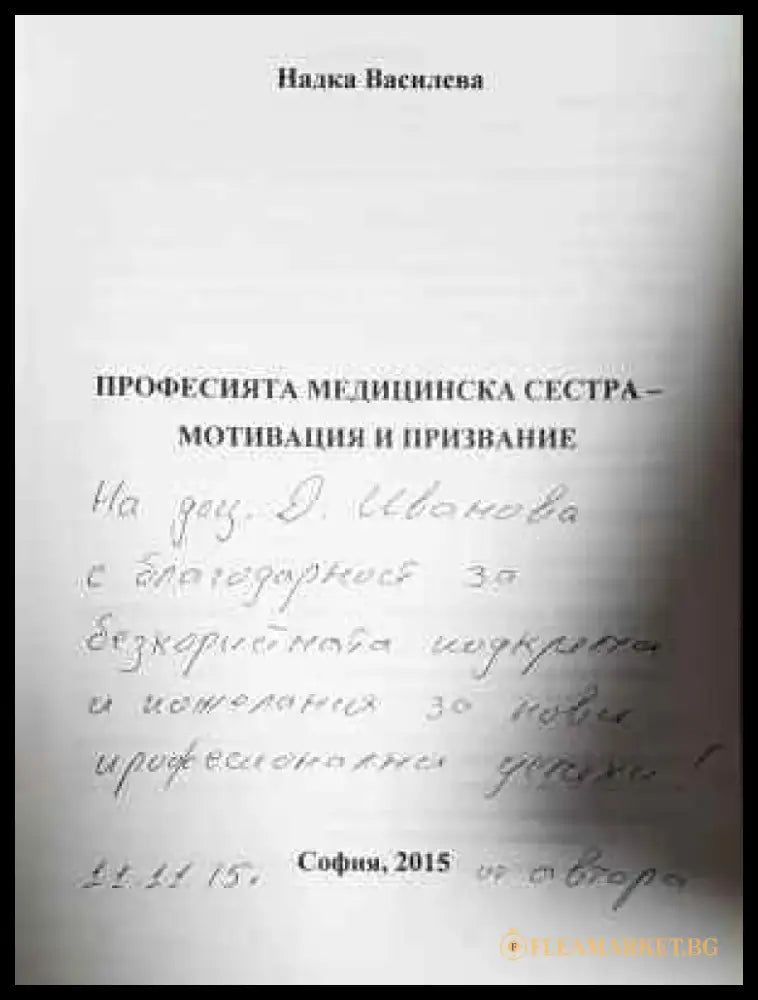 Надка Василева
ПРОФЕСИЯТА МЕДИЦИНСКА СЕСТРА –
МОТИВАЦИЯ И ПРИЗВАНИЕ
На доц. Д. Иванова
с благодарност за
безкористната подкрепа
и пожелания за нови
професионални успехи!
11.11.15г. София, 2015 от автора
FLEAMARKET.BG